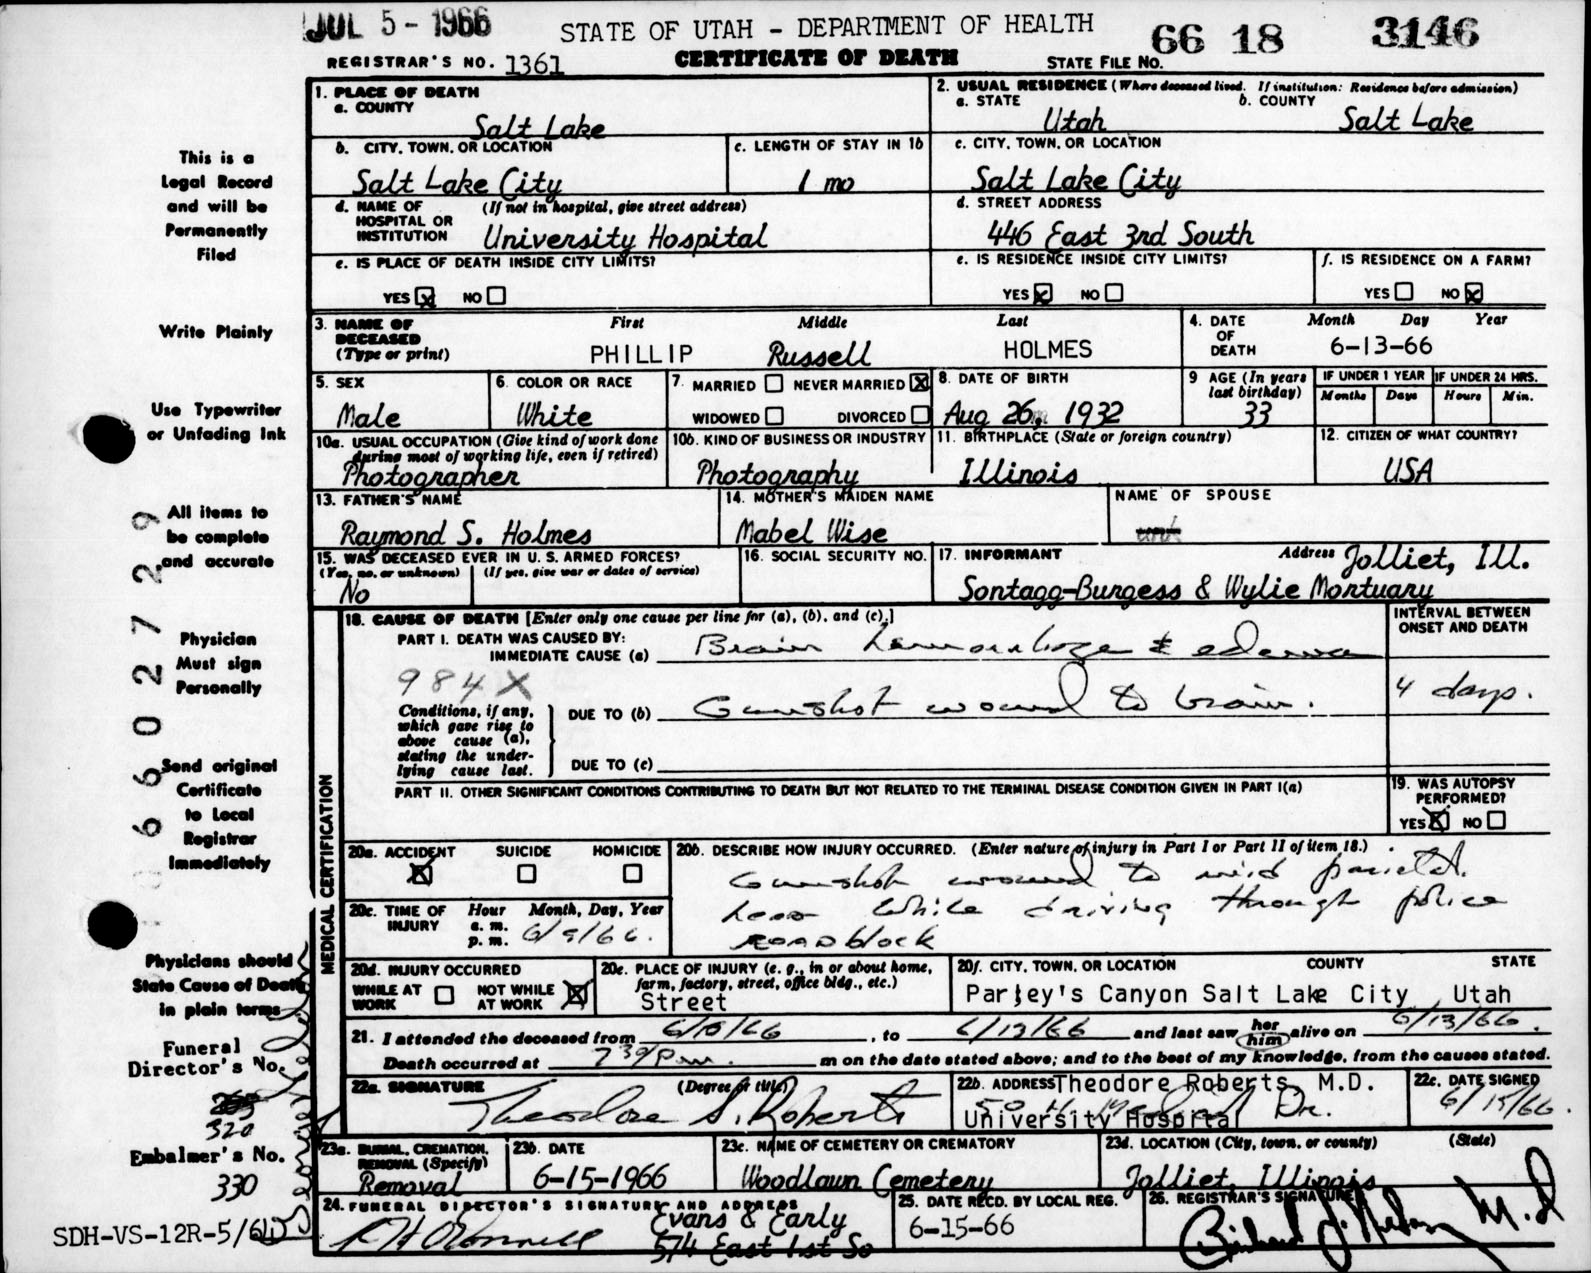 JUL 5 - 1966
STATE OF UTAH - DEPARTMENT OF HEALTH
66 18 3146
REGISTRAR'S NO. 1361
CERTIFICATE OF DEATH
STATE FILE NO.
1. PLACE OF DEATH
a. COUNTY
Salt Lake
2. USUAL RESIDENCE (Where deceased lived. If institution: Residence before admission)
a. STATE
Utah
b. COUNTY
Salt Lake
b. CITY, TOWN, OR LOCATION
Salt Lake City
c. LENGTH OF STAY IN 1b
1 mo
c. CITY, TOWN, OR LOCATION
Salt Lake City
d. NAME OF HOSPITAL OR INSTITUTION (If not in hospital, give street address)
University Hospital
d. STREET ADDRESS
446 East 3rd South
e. IS PLACE OF DEATH INSIDE CITY LIMITS?
YES NO
e. IS RESIDENCE INSIDE CITY LIMITS?
YES NO
f. IS RESIDENCE ON A FARM?
YES NO
3. NAME OF DECEASED (Type or print)
First Middle Last
PHILLIP Russell HOLMES
4. DATE OF DEATH
Month Day Year
6-13-66
5. SEX
Male
6. COLOR OR RACE
White
7. MARRIED NEVER MARRIED
WIDOWED DIVORCED
8. DATE OF BIRTH
Aug 26, 1932
9 AGE (In years last birthday)
33
IF UNDER 1 YEAR
Months Days
IF UNDER 24 HRS.
Hours Min.
10a. USUAL OCCUPATION (Give kind of work done during most of working life, even if retired)
Photographer
10b. KIND OF BUSINESS OR INDUSTRY
Photography
11. BIRTHPLACE (State or foreign country)
Illinois
12. CITIZEN OF WHAT COUNTRY?
USA
13. FATHER'S NAME
Raymond S. Holmes
14. MOTHER'S MAIDEN NAME
Mabel Wise
NAME OF SPOUSE
15. WAS DECEASED EVER IN U. S. ARMED FORCES?
(Yes, no, or unknown) (If yes, give war or dates of service)
No
16. SOCIAL SECURITY NO.
17. INFORMANT Address
Jolliet, Ill.
Sontagg-Burgess & Wylie Mortuary
MEDICAL CERTIFICATION
18. CAUSE OF DEATH [Enter only one cause per line for (a), (b), and (c).]
PART I. DEATH WAS CAUSED BY:
IMMEDIATE CAUSE (a) Brain hemorrhage & edema
INTERVAL BETWEEN ONSET AND DEATH
984X
Conditions, if any, which gave rise to above cause (a), stating the underlying cause last.
DUE TO (b) Gunshot wound to brain.
4 days.
DUE TO (c)
PART II. OTHER SIGNIFICANT CONDITIONS CONTRIBUTING TO DEATH BUT NOT RELATED TO THE TERMINAL DISEASE CONDITION GIVEN IN PART I(a)
19. WAS AUTOPSY PERFORMED?
YES NO
20a. ACCIDENT SUICIDE HOMICIDE
20b. DESCRIBE HOW INJURY OCCURRED. (Enter nature of injury in Part I or Part II of item 18.)
Gunshot wound to mid parietal
while driving through police
roadblock
20c. TIME OF INJURY
Hour Month, Day, Year
a. m.
p. m.
6/9/66.
20d. INJURY OCCURRED
WHILE AT WORK NOT WHILE AT WORK
20e. PLACE OF INJURY (e. g., in or about home, farm, factory, street, office bldg., etc.)
Street
20f. CITY, TOWN, OR LOCATION COUNTY STATE
Parley's Canyon Salt Lake City Utah
21. I attended the deceased from 6/10/66, to 6/13/66 and last saw her him alive on 6/13/66.
Death occurred at 739 p.m. m on the date stated above; and to the best of my knowledge, from the causes stated.
22a. SIGNATURE (Degree or title)
Theodore S. Roberts
22b. ADDRESS Theodore Roberts, M.D.
University Hospital
Dr.
22c. DATE SIGNED
6/15/66.
23a. BURIAL, CREMATION, REMOVAL (Specify)
Removal
23b. DATE
6-15-1966
23c. NAME OF CEMETERY OR CREMATORY
Woodlawn Cemetery
23d. LOCATION (City, town, or county) (State)
Jolliet, Illinois
24. FUNERAL DIRECTOR'S SIGNATURE AND ADDRESS
Evans & Early
574 East 1st So
25. DATE RECD. BY LOCAL REG.
6-15-66
26. REGISTRAR'S SIGNATURE
M.D
This is a
Legal Record
and will be
Permanently
Filed
Write Plainly
Use Typewriter
or Unfading Ink
All items to
be complete
and accurate
Physician
Must sign
Personally
Send original
Certificate
to Local
Registrar
Immediately
Physicians should
State Cause of Death
in plain terms
Funeral
Director's No.
320
Embalmer's No.
330
SDH-VS-12R-5/6